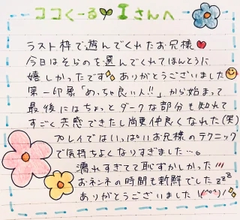 ココくーる♡Iさんへ
ラスト枠で遊んでくれたお兄様
今日はそらのを選んでくれてほんとに
嬉しかったです ありがとうございました
第一印象「めっちゃ良い人!!」から始まって
最後にはちょっとダークな部分も知れて
すごく共感できたし尚更仲良くなれた(笑)
プレイではいっぱいお兄様のテクニック
で気持ちよくなりすぎました…。
濡れすぎてて恥ずかしかった!!!
おネンネの時間も新鮮でしたzzz
ありがとうございました